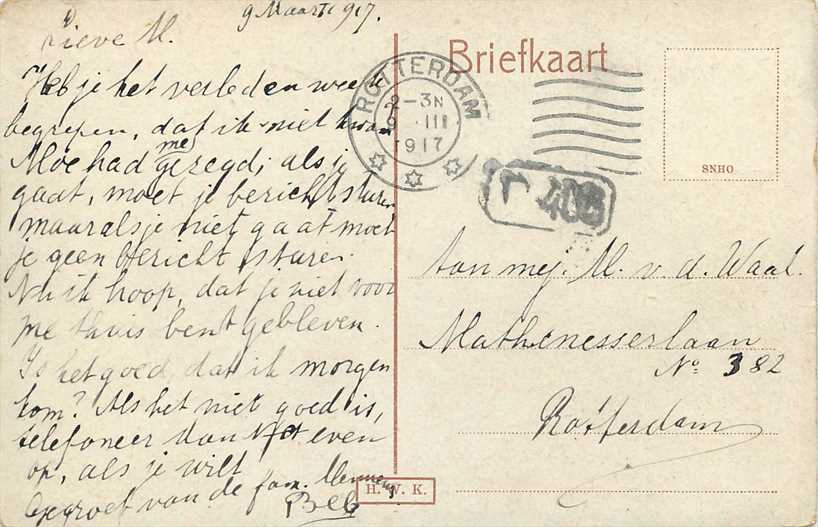 9 Maart 1917.
Lieve M.
Heb je het verleden week
begrepen, dat ik niet kwam
Moe had me gezegd; als je
gaat, moet je bericht sturen
maar als je niet gaat moet
je geen bericht sturen.
Nu ik hoop, dat je niet voor
me thuis bent gebleven.
Is het goed, dat ik morgen
kom? Als het niet goed is,
telefoneer dan even
op, als je wilt
Gegroet van de fam.
Beb
Briefkaart
ROTTERDAM
2-3N
9 .III
1917
SNHO
Aan mej. M. v. d. Waal.
Mathenesserlaan
No 382
Rotterdam
H. W. K.